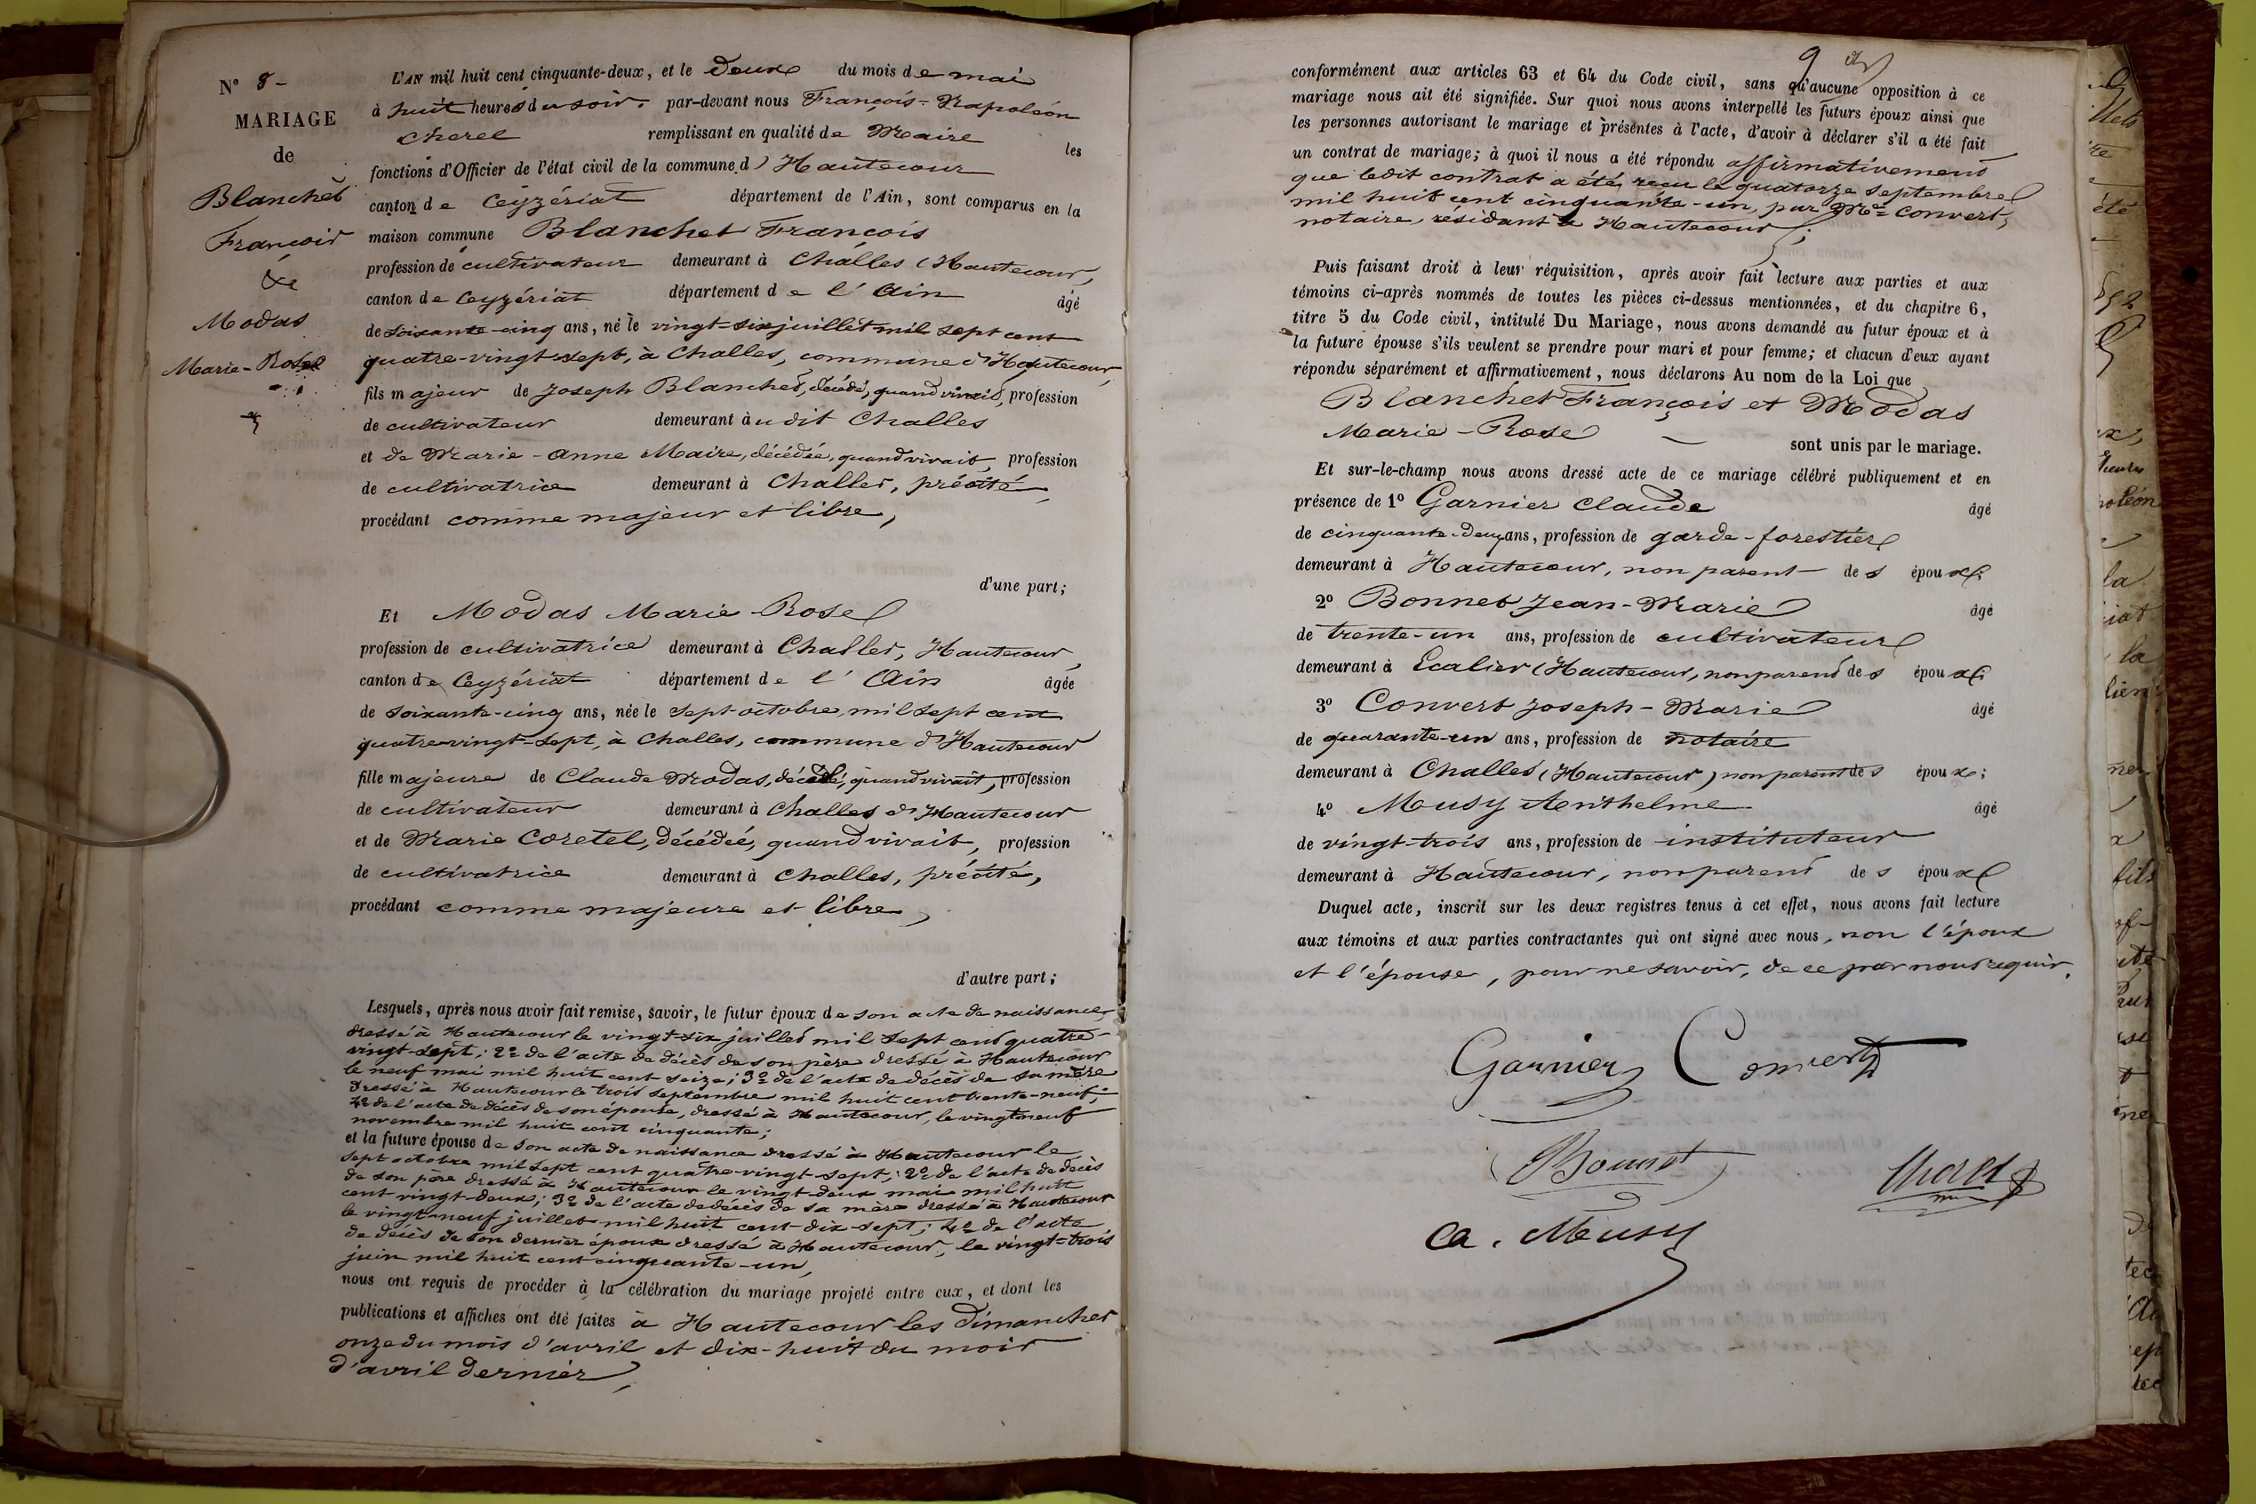 N° 8 -
MARIAGE
de
Blanchet
François
&
Modas
Marie-Rose
L'AN mil huit cent cinquante-deux, et le deux du mois de mai
à huit heures du soir, par-devant nous François-Napoléon
Cherel remplissant en qualité de Maire les
fonctions d'Officier de l'état civil de la commune d'Hautecour
canton de Ceyzériat département de l'Ain, sont comparus en la
maison commune Blanchet François
profession de cultivateur demeurant à Challes (Hautecour,
canton de Ceyzériat département de l'Ain âgé
de soixante-cinq ans, né le vingt-six juillet mil sept cent
quatre-vingt-sept, à Challes, commune d'Hautecour,
fils majeur de Joseph Blanchet, décédé, quand vivait, profession
de cultivateur demeurant audit Challes
et de Marie-Anne Maire, décédée, quand vivait, profession
de cultivatrice demeurant à Challes, précité,
procédant comme majeur et libre,
d'une part;
Et Modas Marie-Rose
profession de cultivatrice demeurant à Challes, Hautecour,
canton de Ceyzériat département de l'Ain âgée
de soixante-cinq ans, née le sept octobre mil sept cent
quatre-vingt-sept, à Challes, commune d'Hautecour
fille majeure de Claude Modas, décédé, quand vivait, profession
de cultivateur demeurant à Challes d'Hautecour
et de Marie Coretel, décédée, quand vivait, profession
de cultivatrice demeurant à Challes, précité,
procédant comme majeure et libre,
d'autre part;
Lesquels, après nous avoir fait remise, savoir, le futur époux de son acte de naissance
dressé à Hautecour le vingt-six juillet mil sept cent quatre-
vingt-sept; 2° de l'acte de décès de son père dressé à Hautecour
le neuf mai mil huit cent seize; 3° de l'acte de décès de sa mère
dressé à Hautecour le trois septembre mil huit cent trente-neuf;
4° de l'acte de décès de son épouse, dressé à Hautecour, le vingt-neuf
novembre mil huit cent cinquante;
et la future épouse de son acte de naissance dressé à Hautecour le
sept octobre mil sept cent quatre-vingt-sept; 2° de l'acte de décès
de son père dressé à Hautecour le vingt-deux mai mil huit
cent vingt-deux; 3° de l'acte de décès de sa mère dressé à Hautecour
le vingt-neuf juillet mil huit cent dix-sept; 4° de l'acte
de décès de son dernier époux dressé à Hautecour, le vingt-trois
juin mil huit cent cinquante-un,
nous ont requis de procéder à la célébration du mariage projeté entre eux, et dont les
publications et affiches ont été faites à Hautecour les dimanches
onze du mois d'avril et dix-huit du mois
d'avril dernier,
9
conformément aux articles 63 et 64 du Code civil, sans qu'aucune opposition à ce
mariage nous ait été signifiée. Sur quoi nous avons interpellé les futurs époux ainsi que
les personnes autorisant le mariage et présentes à l'acte, d'avoir à déclarer s'il a été fait
un contrat de mariage; à quoi il nous a été répondu affirmativement
que ledit contrat a été reçu le quatorze septembre
mil huit cent cinquante-un, par Me Convert,
notaire, résidant à Hautecour;
Puis faisant droit à leur réquisition, après avoir fait lecture aux parties et aux
témoins ci-après nommés de toutes les pièces ci-dessus mentionnées, et du chapitre 6,
titre 5 du Code civil, intitulé Du Mariage, nous avons demandé au futur époux et à
la future épouse s'ils veulent se prendre pour mari et pour femme; et chacun d'eux ayant
répondu séparément et affirmativement, nous déclarons Au nom de la Loi que
Blanchet François et Modas
Marie-Rose — sont unis par le mariage.
Et sur-le-champ nous avons dressé acte de ce mariage célébré publiquement et en
présence de 1° Garnier Claude âgé
de cinquante-deux ans, profession de garde-forestier
demeurant à Hautecour, non parent des époux;
2° Bonnet Jean-Marie âgé
de trente-un ans, profession de cultivateur
demeurant à Ecalier (Hautecour, non parent des époux;
3° Convert Joseph-Marie âgé
de quarante-un ans, profession de notaire
demeurant à Challes (Hautecour) non parent des époux;
4° Musy Anthelme âgé
de vingt-trois ans, profession de instituteur
demeurant à Hautecour, non parent des époux
Duquel acte, inscrit sur les deux registres tenus à cet effet, nous avons fait lecture
aux témoins et aux parties contractantes qui ont signé avec nous, non l'époux
et l'épouse, pour ne savoir, de ce par nous requis.
Garnier Convert
Bonnet
Cherel
A. Musy